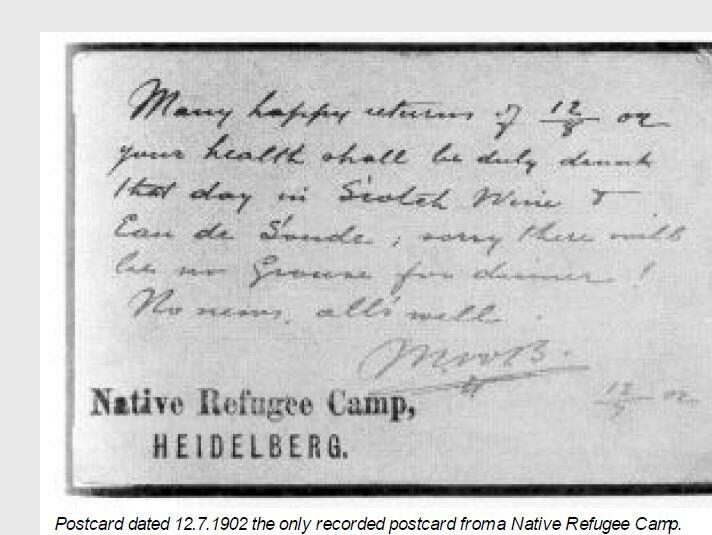 Many happy returns of 12/8 02
your health shall be duly drunk
that day in Scotch Wine &
Eau de Soude, sorry there will
be no Grouse for dinner!
No news, all's well.
MWB.
12/7 02
Native Refugee Camp,
HEIDELBERG.
Postcard dated 12.7.1902 the only recorded postcard from a Native Refugee Camp.